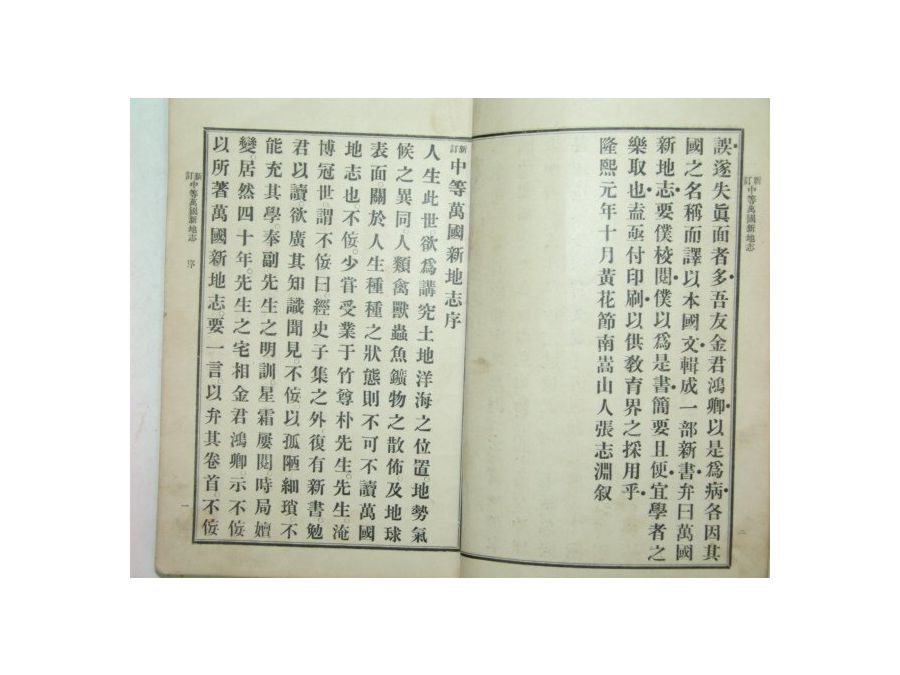 新訂中等萬國新地志
二
誤遂失眞面者多吾友金君鴻卿以是爲病各因其
國之名稱而譯以本國文輯成一部新書弁曰萬國
新地志要僕校閱僕以爲是書簡要且便宜學者之
樂取也盍亟付印刷以供敎育界之採用乎
隆熙元年十月黃花節南嵩山人張志淵叙
新訂中等萬國新地志序
人生此世欲爲講究土地洋海之位置地勢氣
候之異同人類禽獸蟲魚鑛物之散佈及地球
表面關於人生種種之狀態則不可不讀萬國
地志也不侫少甞受業于竹尊朴先生先生淹
博冠世謂不侫曰經史子集之外復有新書勉
君以讀欲廣其知識聞見不侫以孤陋細瑣不
能充其學奉副先生之明訓星霜屢閱時局嬗
變居然四十年先生之宅相金君鴻卿示不侫
以所著萬國新地志要一言以弁其卷首不侫
新訂中等萬國新地志 序
一